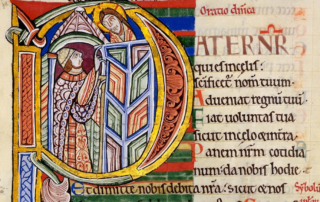 Oratio d̄nica
PATER NR̄
qui es in celis:
scificet᷑ nom̄ tuum
Adueniat regnū tuū.
Fiat uoluntas tua
sicut in celo & in t̄ra.
Panem nr̄m cotidia
num: da nobis hodie.
Et dimitte nobis debita nr̄a: sicut & nos